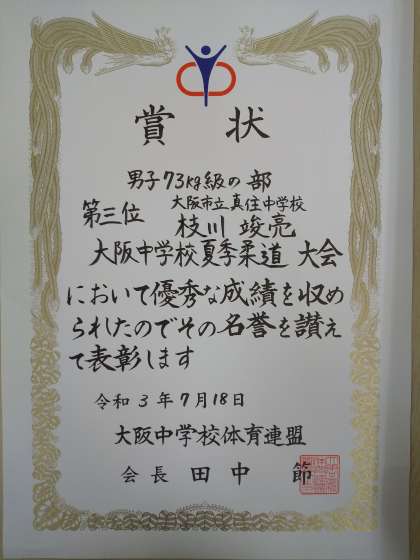 賞状
男子73kg級の部
大阪市立真住中学校
第三位 枝川 竣亮
大阪中学校夏季柔道 大会
において優秀な成績を収め
られたのでその名誉を讃え
て表彰します
令和3年7月18日
大阪中学校体育連盟
会長 田中 節